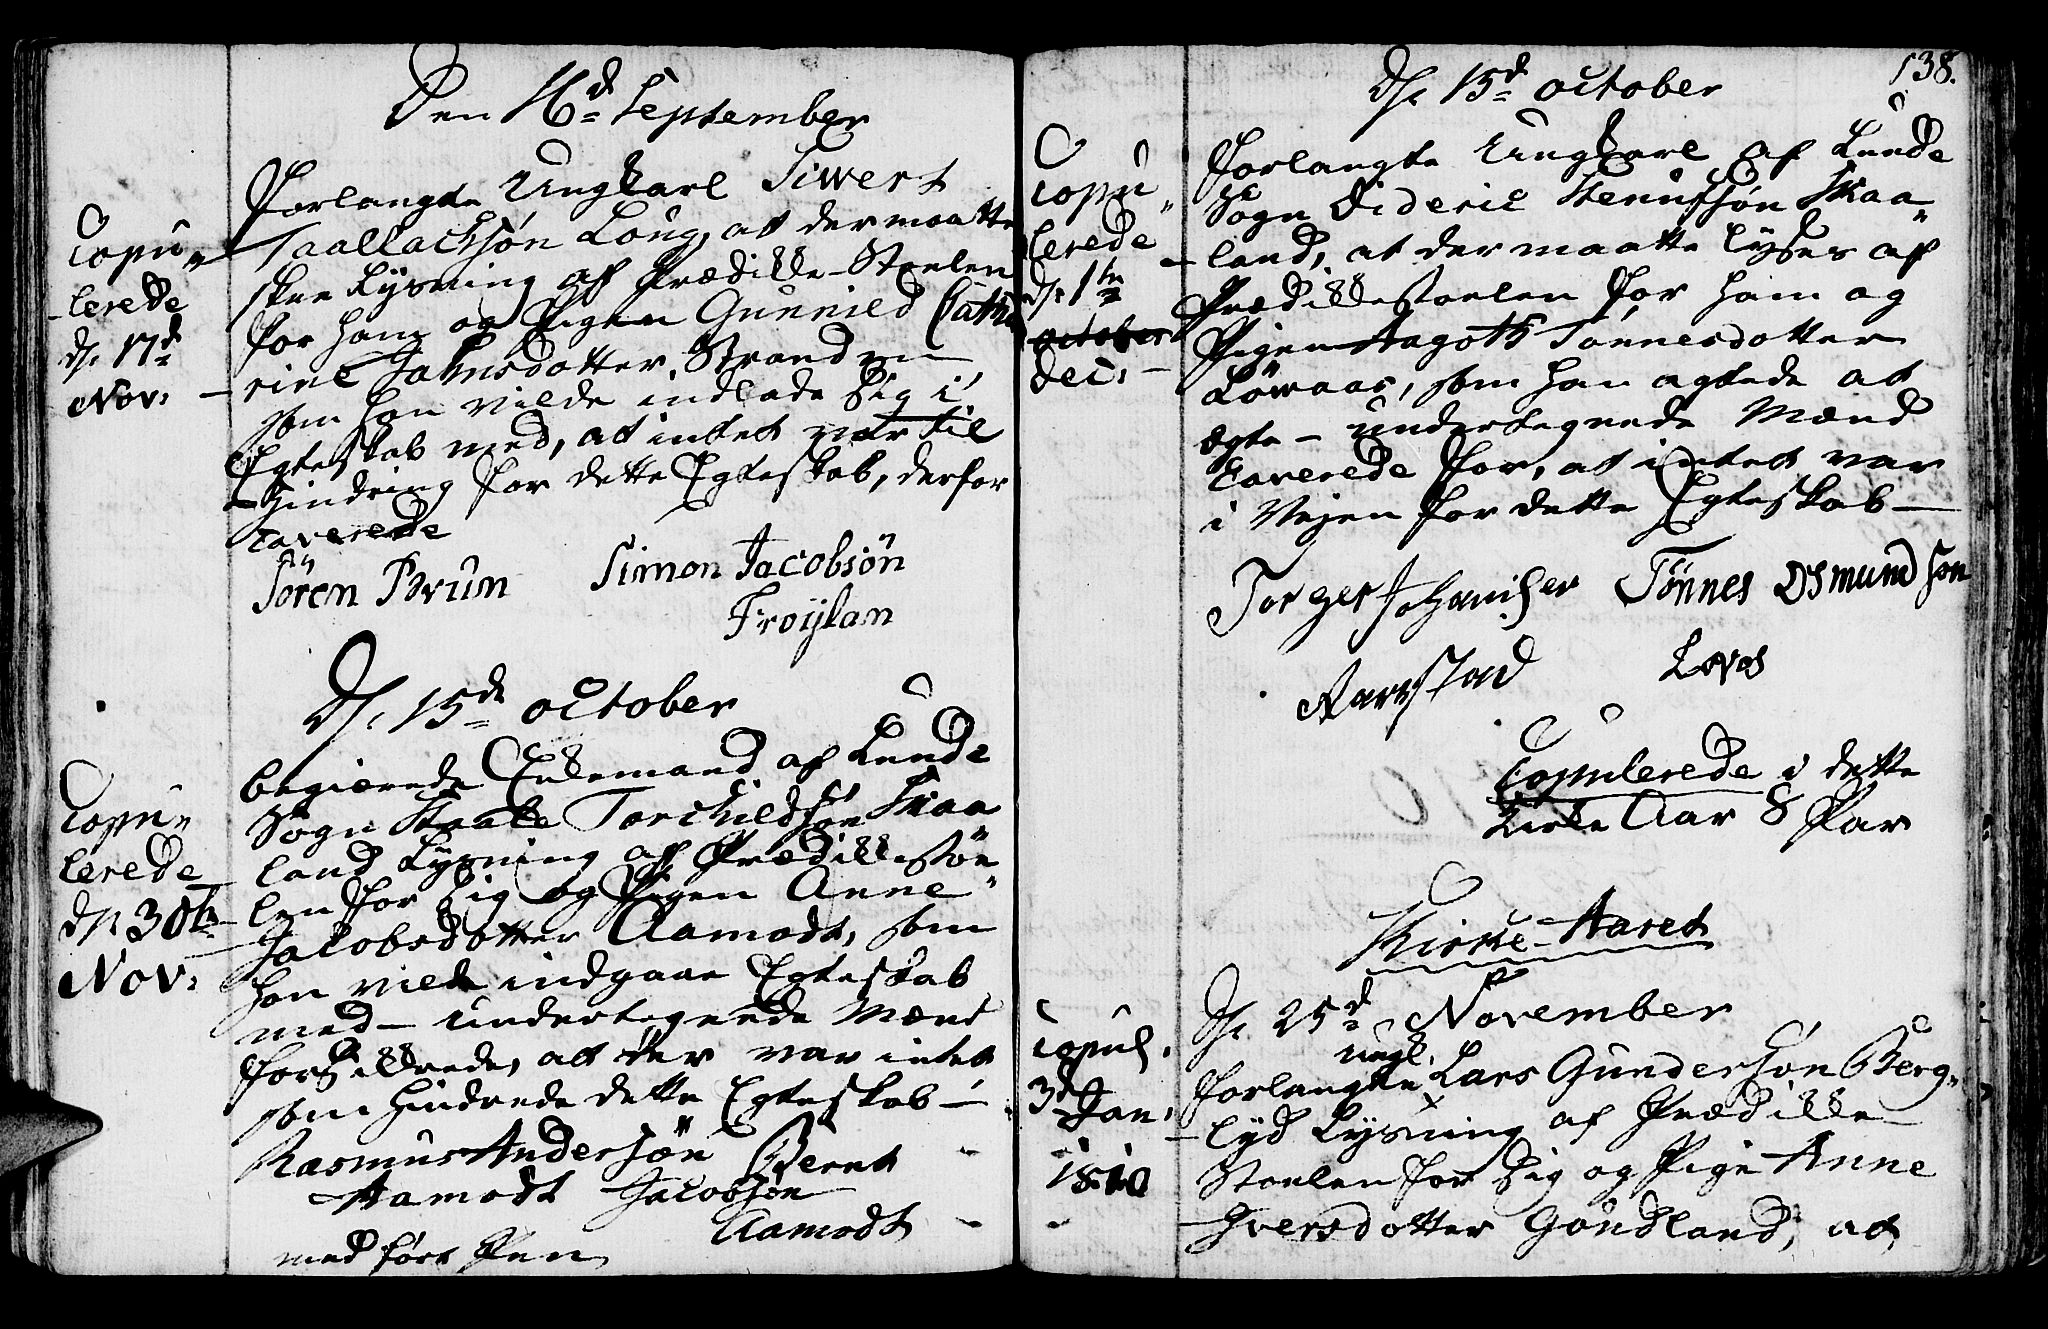 Den 16d September
Copu-
lerede
d. 17d
Nov:
Forlangte Ungkarl Siwert
Taallachsøn Loug, at der maatte
skee Lysning af Prædikke-Stoelen
for ham og Pigen Gunnild Cathe
rine Jahnsdotter Stranden
som han vilde indlade sig i
Egteskab med, at intet var til
Hindring for dette Egteskab, derfor
Caverede
Sören Brun Simon Jacobsön
Fröylan
D. 15de October
Copu-
lerede
d. 30te
Nov:
begierede Enkemand af Lunde
Sogn Torchildsøn Skaa
land Lysning af Prædikkestoe
len for sig og Pigen Anne
Jacobsdotter Aamodt, som
han vilde indgaae Egteskab
med – undertegnede Mænd
forsikkrede, at der var intet
som hindrede dette Egteskab –
Rasmus Andersøn Bernt
Aamodt Jacobsøn
Aamodt
med ført Pen
138.
D. 15d October
Copu-
lerede
d. 1te
october
Dec:
Forlangte Ungkarl af Lunde
Sogn Dideric Skaa-
land, at der maatte lyses af
Prædikkestoelen for ham og
Pigen Aagoth Tönnesdotter
Löwaas, som han agtede at
ægte – undertegnede Mænd
Caverede for, at intet var
i Vejen for dette Egteskab –
Torger Johanisen Tönnes Osmundsøn
Aarrstad Lovos
Copulerede i dette
Kirke Aar 8 Par
Kirke-Aaret
D. 25d November
Copul.
3d Jan:
1810
Ungk.
Forlangte Lars Gundersøn Berg-
lyd Lysning af Prædikke-
Stoelen for sig og Pige Anne
Iversdotter Göudland, at